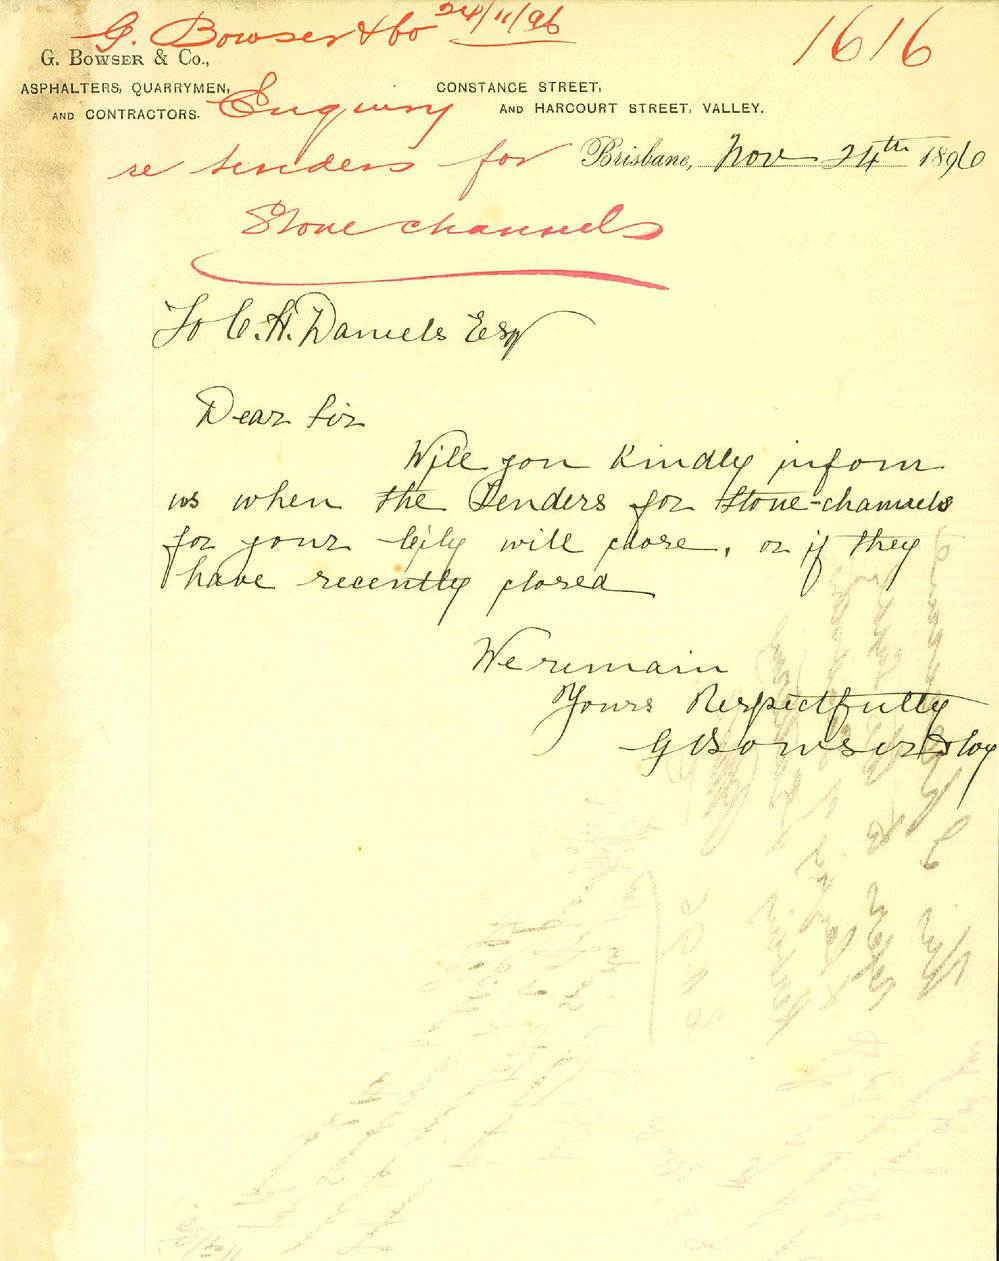 G. Bowser & Co 24/11/96
1616
G. BOWSER & CO.,
ASPHALTERS, QUARRYMEN,
AND CONTRACTORS.
CONSTANCE STREET,
AND HARCOURT STREET, VALLEY.
Enquiry
re tenders for
Stone channels
Brisbane, Nov 24th 1896
To C. H. Daniels Esq
Dear Sir
Will you kindly inform
us when the Tenders for Stone-channels
for your City will close, or if they
have recently closed
We remain
Yours Respectfully
G Bowser & Coy